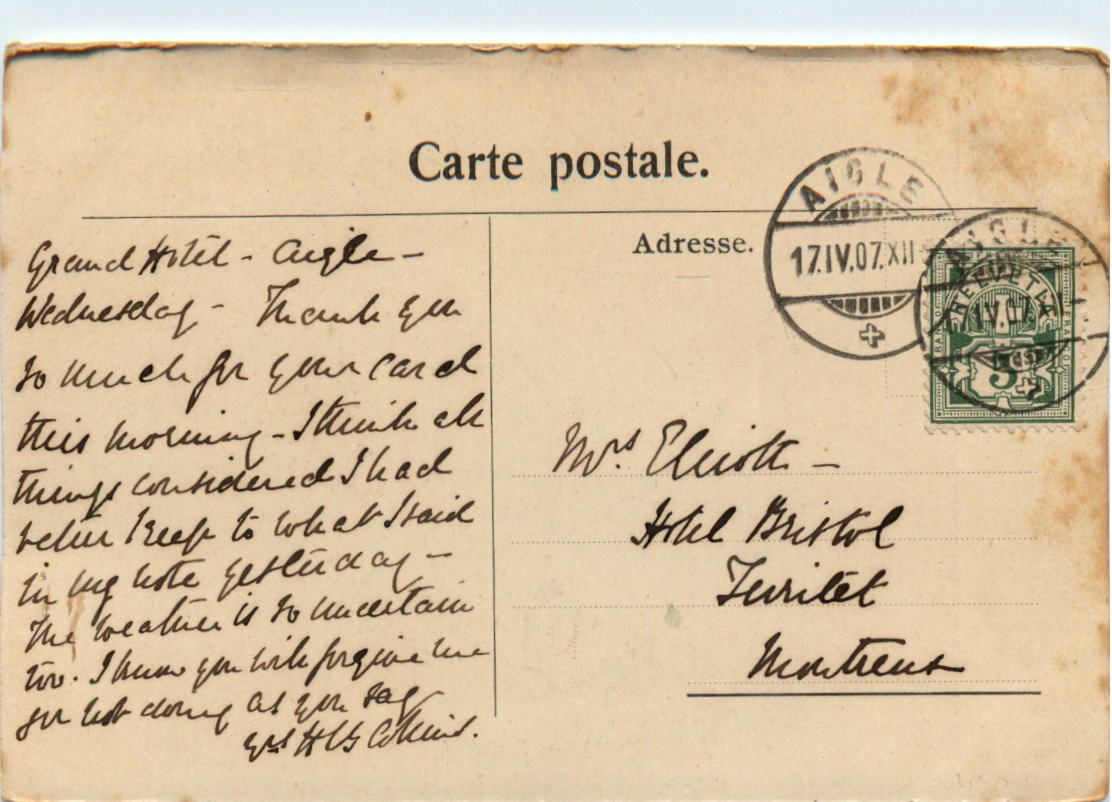 Carte postale.
Adresse.
AIGLE
17.IV.07.XII
AIGLE
HELVETIA
FRANCO
FRANCO
5
Grand Hotel - Aigle -
Wednesday - Thank you
so much for your card
this morning - I think all
things considered I had
better keep to what I said
in my note yesterday -
The weather is so uncertain
too. I know you will forgive me
for not doing as you say
yrs H G Collins.
Mrs. Elliott -
Hotel Bristol
Territet
Montreux